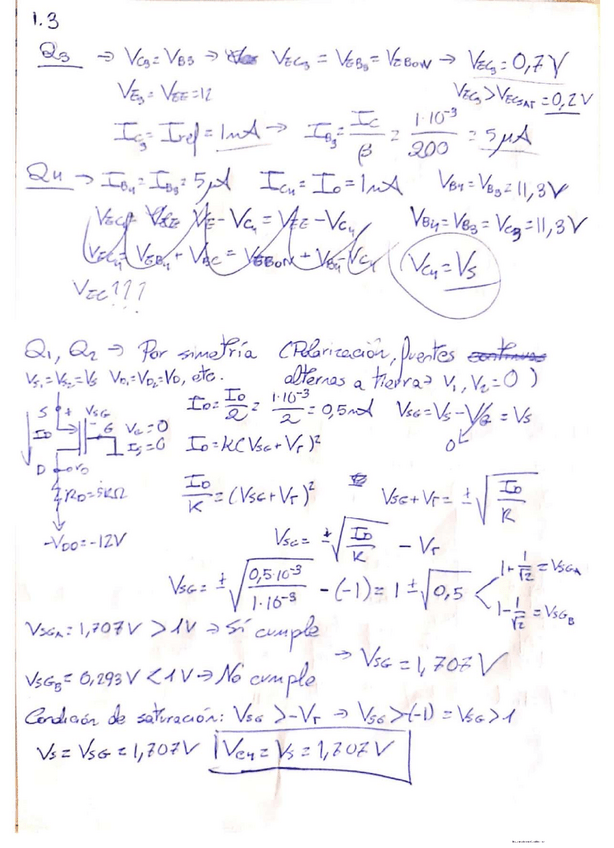 1.3
Q3 → VC3 = VB3 → VEC3 = VEB3 = VEBON → VEC3 = 0,7V
VE3 = VEE = 12 VEC3 > VECSAT = 0,2V
IC3 = Iref = 1mA → IB3 = IC/β = 1·10⁻³/200 = 5μA
Q4 → IB4 = IB3 = 5μA IC4 = IO = 1mA VB4 = VB3 = 11,3V
VE - VC4 = VEE - VC4 VB4 = VB3 = VC3 = 11,3V
VEC4 = VEB4 + VBC = VEBON + VB4 - VC4 VC4 = VS
VEC???
Q1, Q2 → Por simetría (Polarización, fuentes continuas
VS1 = VS2 = VS VD1 = VD2 = VD, etc. alternas a tierra → V1, V2 = 0)
S + VSG ID = IO/2 = 1·10⁻³/2 = 0,5mA VSG = VS - VG = VS
0
ID - G VG = 0 IG = 0 ID = K(VSG + VT)²
D VD
RD = 5kΩ ID/K = (VSG + VT)² VSG + VT = ±√(ID/K)
-VDD = -12V VSG = ±√(ID/K) - VT
VSG = ±√(0,5·10⁻³/1·10⁻³) - (-1) = 1 ± √0,5 < 1 + 1/√2 = VSGA
1 - 1/√2 = VSGB
VSGA = 1,707V > 1V → Sí cumple
→ VSG = 1,707V
VSGB = 0,293V < 1V → No cumple
Condición de saturación: VSG > -VT → VSG > -(-1) = VSG > 1
VS = VSG = 1,707V VC4 = VS = 1,707V